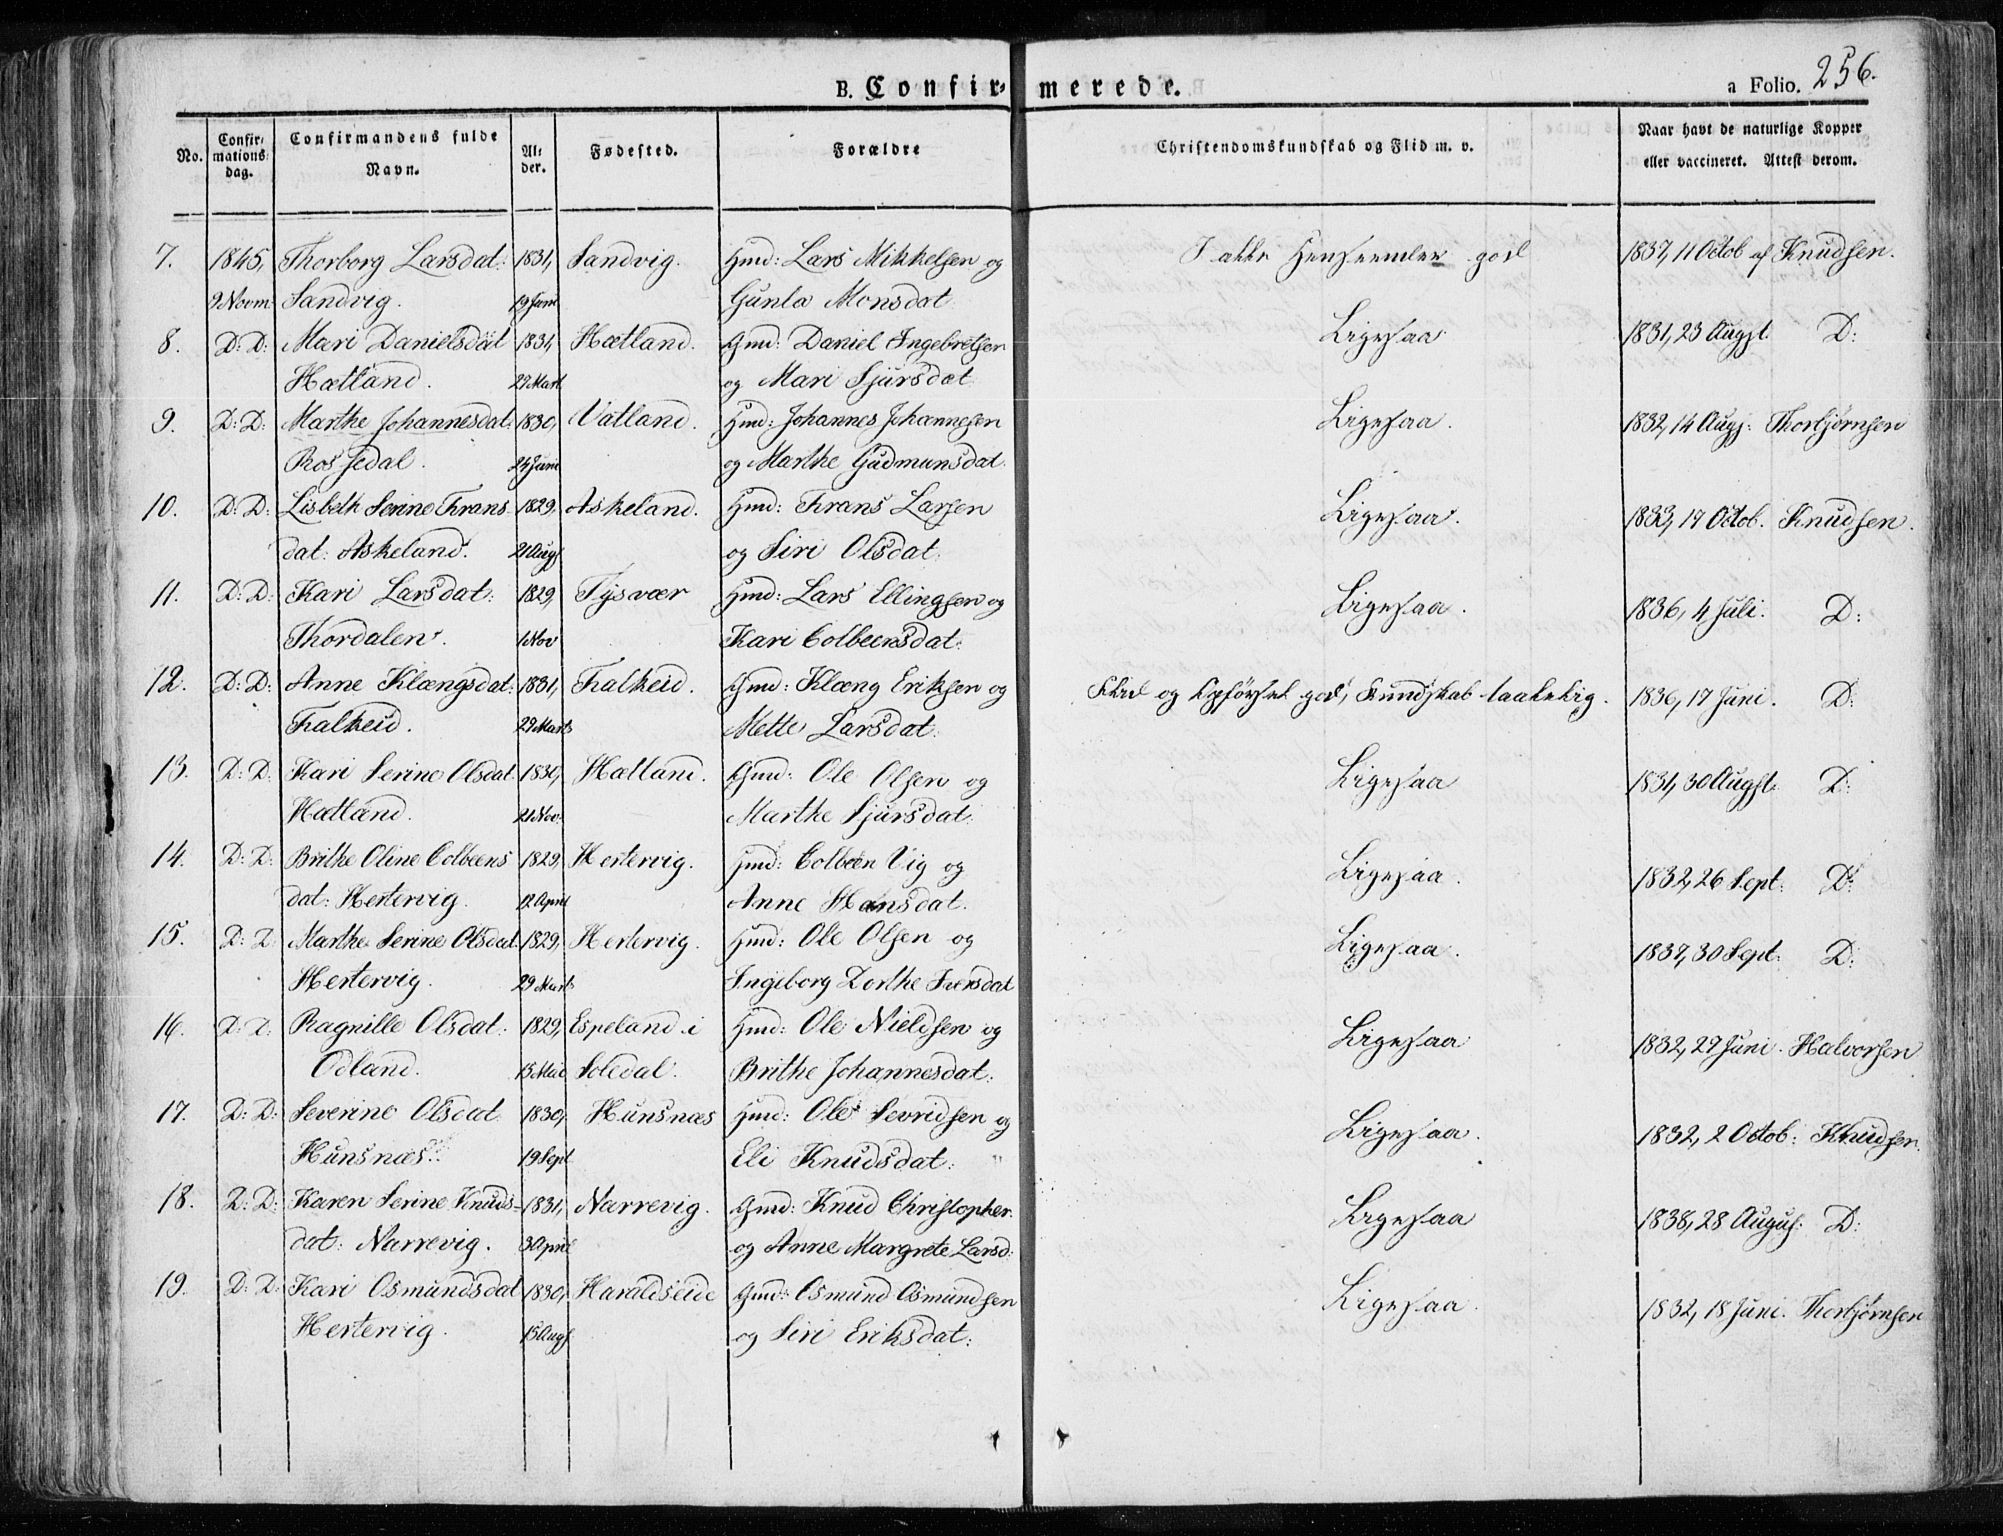 B. Confirmerede.
a Folio. 256.
No. Confirmations dag. Confirmandens fulde Navn. Alder. Fødested. Forældre Christendomskundskab og Flid m. v. Naar havt de naturlige Kopper eller vaccineret. Attest derom.
7. 1845, Thorborg Larsdat: 1831, Sandvig. Gmd: Lars Mikkelsen og I alle Henseender god 1837, 11 Octob af Knudsen.
9 Novm Sandvig. 19 Juni Gunla Monsdat
8. D: D: Mari Danielsdat 1831, Hætland. Gmd: Daniel Ingebretsen Ligesaa 1831, 23 Augst. D:
Hætland. 27 Mart og Mari Sjursdat
9. D: D: Marthe Johannesdat: 1830, Vatland. Gmd: Johannes Johannesen Ligesaa. 1832, 14 Augs: Thorbjørnsen
Rossedal. 24 Juni og Marthe Gudmunsdat.
10. D: D: Lisbeth Serine Frans 1829, Askeland. Gmd: Frans Larsen Ligesaa. 1833, 17 Octob. Knudsen.
dat: Askeland. 21 Augs og Siri Olsdat:
11. D: D: Kari Larsdat: 1829, Tysvær Gmd: Lars Ellingsen og Ligesaa. 1836, 4 Juli. D:
Thordalen. 1 Nov Kari Colbeensdat:
12. D: D: Anne Klængsdat: 1831, Falkeid. Gmd: Klæng Eriksen og Flid og Opførsel god, Kundskab taalelig. 1836, 17 Juni. D:
Falkeid. 29 Mart Mette Larsdat:
13. D: D: Kari Serine Olsdat 1830, Hætland. Gmd: Ole Olsen og Ligesaa 1831, 30 Augst. D:
Hætland. 21 Nov: Marthe Sjursdat:
14. D: D: Brithe Oline Colbeens 1829, Hertervig. Gmd: Colbeen Vig og Ligesaa. 1832, 26 Sept: D:
dat: Hertervig. 12 April Anne Hansdat.
15. D: D: Marthe Serine Olsdat 1829, Hertervig. Gmd: Ole Olsen og Ligesaa. 1837, 30 Sept: D:
Hertervig. 29 Mart Ingeborg Dorthe Iversdat
16. D: D: Ragnille Olsdat: 1829, Espeland i Gmd: Ole Nieldsen og Ligesaa 1832, 29 Juni. Halvorsen
Odland. 15 Mai Soledal. Brithe Johannesdat:
17. D: D: Severine Olsdat 1830, Hunsnæs Gmd: Ole Sevridsen og Ligesaa. 1832, 2 Octob: Knudsen.
Hunsnæs. 19 Sept Eli Knudsdat:
18. D: D: Karen Serine Knuds- 1831, Narrevig. Gmd: Knud Christopher. Ligesaa 1838, 28 Augus: D:
dat: Narrevig. 3 April og Anne Margrete Larsd:
19. D: D: Kari Osmundsdat 1830, Haraldseide Gmd: Osmund Osmundsen Ligesaa. 1832, 18 Juni. Thorbjørnsen
Hertervig. 15 Augs. og Siri Eriksdat: